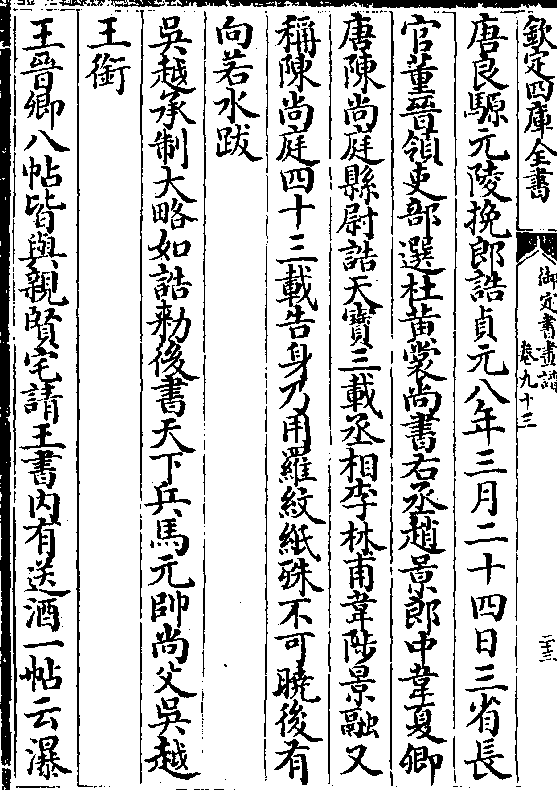 欽定四庫全書
御定書畫譜
卷九十三
二十三
唐良騵元陵挽郎誥貞元八年三月二十四日三省長
官董晉領吏部選杜黄裳尚書右丞趙景郎中韋夏卿
唐陳尚庭縣尉誥天寶三載丞相李林甫韋陟景融又
稱陳尚庭四十三載告身乃用羅紋紙殊不可曉後有
向若水跋
吳越承制大略如誥勑後書天下兵馬元帥尚父吳越
王銜
王晉卿八帖皆與親賢宅請王書内有送酒一帖云瀑